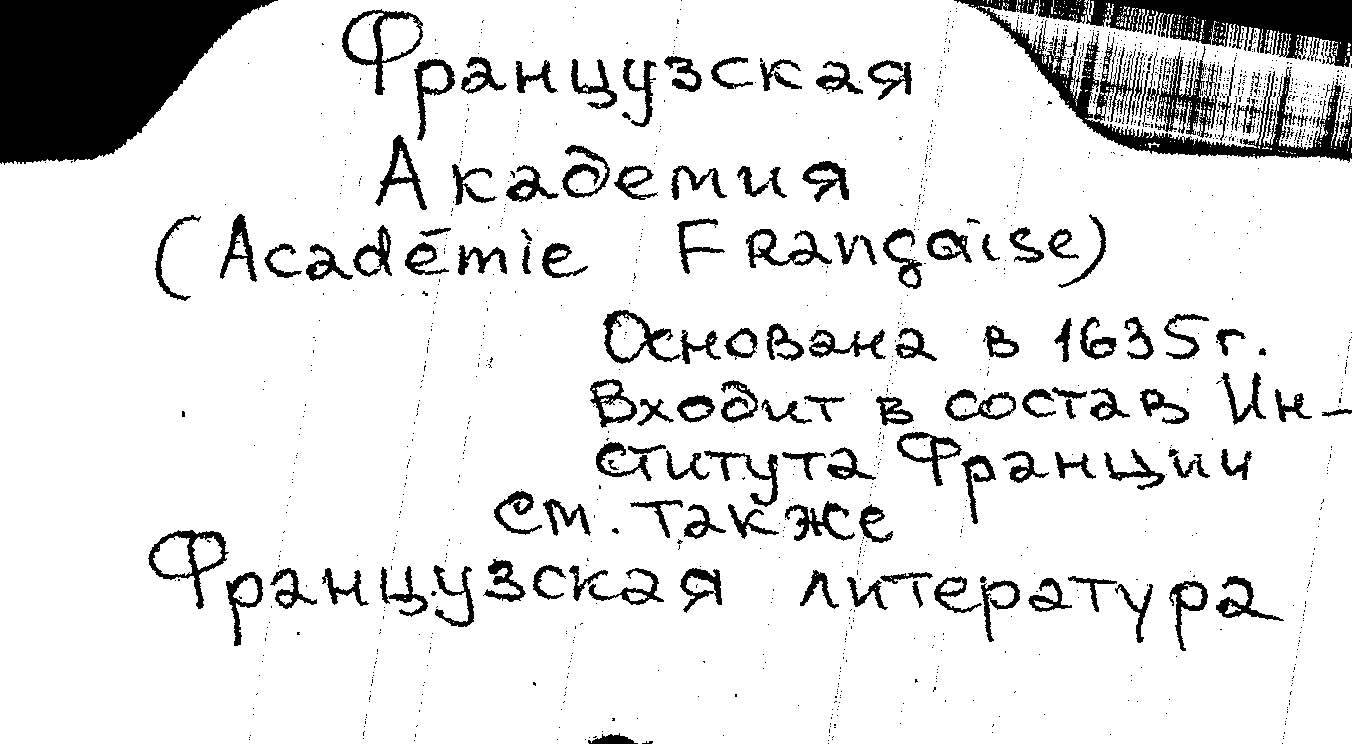 Французская
Академия
(Académie Française)
Основана в 1635 г.
Входит в состав Ин-
ститута Франции
см. также
Французская литература